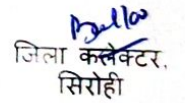 जिला कलेक्टर,
सिरोही